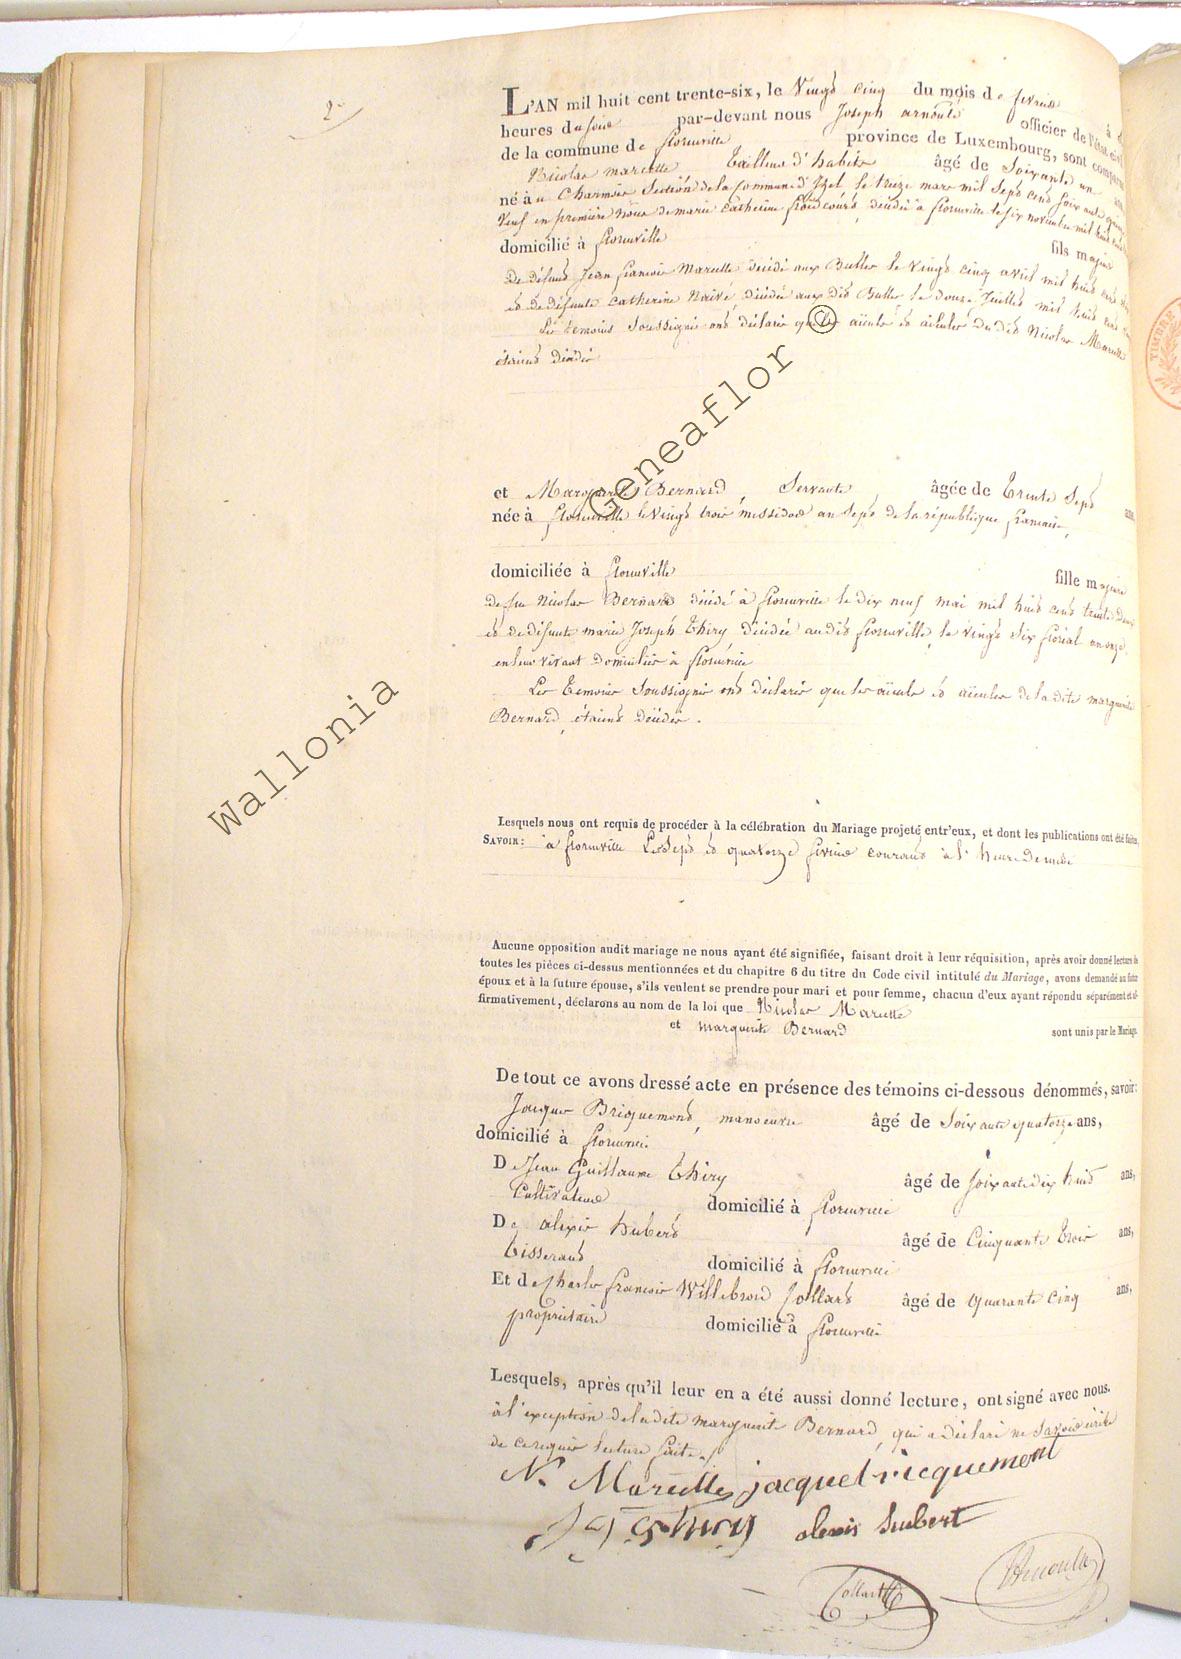 2e
L'AN mil huit cent trente-six, le Vingt cinq du mois de fevrier à
heures du soir par-devant nous Joseph arnould officier de l'état civil
de la commune de florenville province de Luxembourg, sont comparus
Nicolas marcette tailleur d'habits âgé de Soixante un ans
né à Section de la commune d'Izel le treize mars mil Sept cent soixante quinze
Veuf en première nôce de marie Catherine décédée à florenville le six novembre mil huit cent
domicilié à florenville fils majeur
De défunt Jean francois Marcette décédé aux Bulles le vingt cinq avril mil huit cent
et de défunte Catherine Naivé décédée aux dits Bulles le douze Juillet mil huit cent
Les temoins Soussignés ont déclaré que les aïeuls et aïeules du dit Nicolas Marcette
étaient décédés
et Marguerite Bernard, Servante âgée de trente Sept ans
née à florenville le vingt trois messidor an Sept de la république francaise,
domiciliée à florenville fille majeure
de feu Nicolas Bernard décédé à florenville le dix neuf mai mil huit cent trente deux
et de défunte marie Joseph thiry décédée au dit florenville, le vingt Six floréal an onze,
en leur vivant domiciliés à florenville
Les temoins Soussignés ont déclaré que les aïeuls et aïeules de la dite marguerite
Bernard, étaient décédés.
Lesquels nous ont requis de procéder à la célébration du Mariage projeté entr'eux, et dont les publications ont été faites,
SAVOIR: à florenville Les Sept et quatorze fevrier courant à l'heure de midi
Aucune opposition audit mariage ne nous ayant été signifiée, faisant droit à leur réquisition, après avoir donné lecture de
toutes les pièces ci-dessus mentionnées et du chapitre 6 du titre du Code civil intitulé du Mariage, avons demandé au futur
époux et à la future épouse, s'ils veulent se prendre pour mari et pour femme, chacun d'eux ayant répondu séparément et af-
firmativement, déclarons au nom de la loi que Nicolas Marcette
et marguerite Bernard sont unis par le Mariage.
De tout ce avons dressé acte en présence des témoins ci-dessous dénommés, savoir:
Jacques Bricquemont, manoeuvre âgé de Soixante quatorze ans,
domicilié à florenville
De Jean Guillaume thiry âgé de Soixante dix huit ans,
Cultivateur domicilié à florenville
De alexis hubert âgé de Cinquante trois ans,
tisserand domicilié à florenville
Et de Charles francois Willebrord Collard âgé de quarante cinq ans,
propriétaire domicilié à florenville
Lesquels, après qu'il leur en a été aussi donné lecture, ont signé avec nous.
à l'exception de la dite marguerite Bernard, qui a déclaré ne Savoir écrire
de ce requis lecture faite.
N. Marcette jacque bricquemont
J G thiry alexis hubert
Collard Arnould
Wallonia Geneaflor ©
TIMBRE